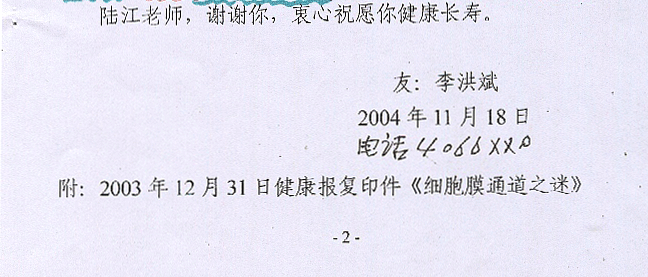 陆江老师，谢谢你，衷心祝愿你健康长寿。
友：李洪斌
2004年11月18日
电话4066XX0
附：2003年12月31日健康报复印件《细胞膜通道之谜》
-2-